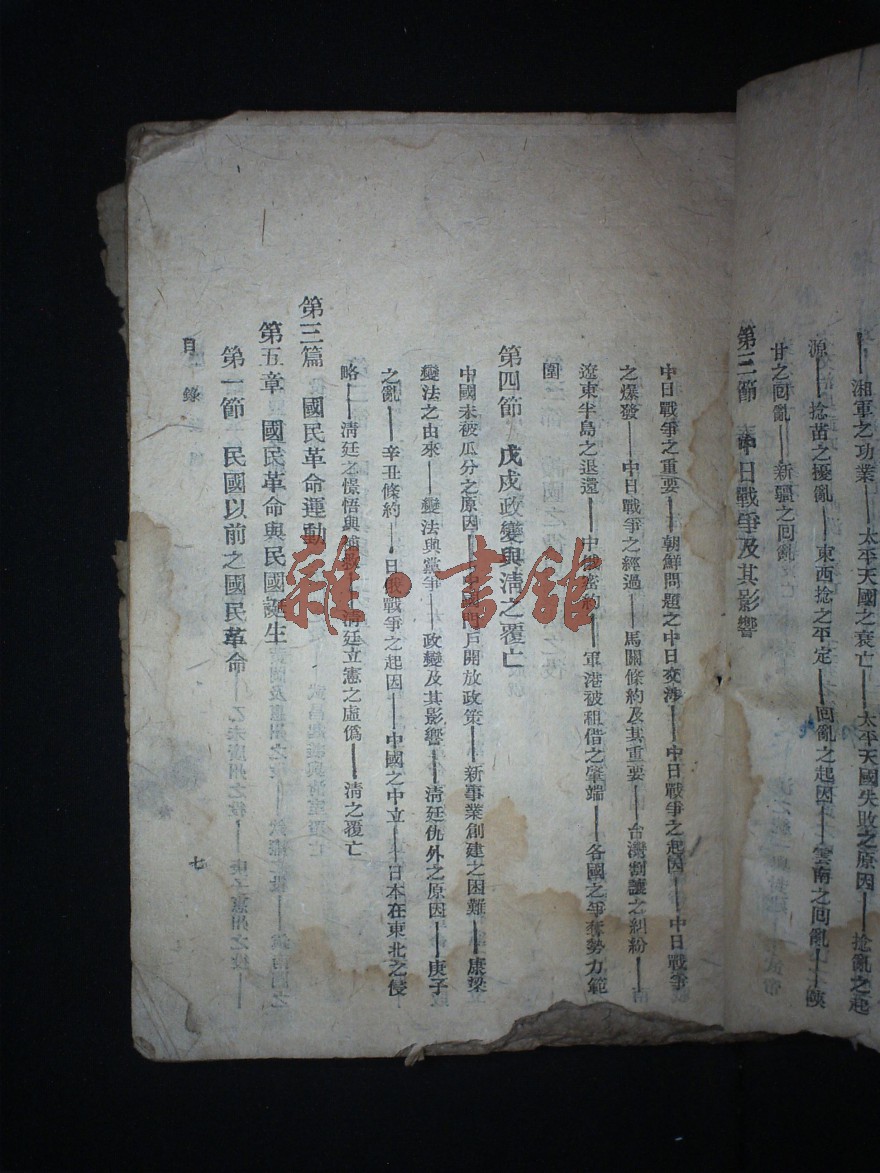 湘軍之功業——太平天國之衰亡——太平天國失敗之原因——捻亂之起
源——捻苗之擾亂——東西捻之平定——回亂之起因——雲南之回亂——陝
甘之回亂——新疆之回亂
第三節 中日戰爭及其影響
中日戰爭之重要——朝鮮問題之中日交涉——中日戰爭之起因——中日戰爭
之爆發——中日戰爭之經過——馬關條約及其重要——台灣割讓之糾紛——
遼東半島之退還——中俄密約——軍港被租借之肇端——各國之爭奪勢力範
圍
第四節 戊戌政變與淸之覆亡
中國未被瓜分之原因——中國門戶開放政策——新事業創建之困難——康梁
變法之由來——變法與黨爭——政變及其影響——淸廷仇外之原因——庚子
之亂——辛丑條約——日俄戰爭之起因——中國之中立——日本在東北之侵
略——淸廷之憬悟與——淸廷立憲之虛僞——淸之覆亡
第三篇 國民革命運動
第五章 國民革命與民國誕生
第一節 民國以前之國民革命
目錄
七
雜·書館